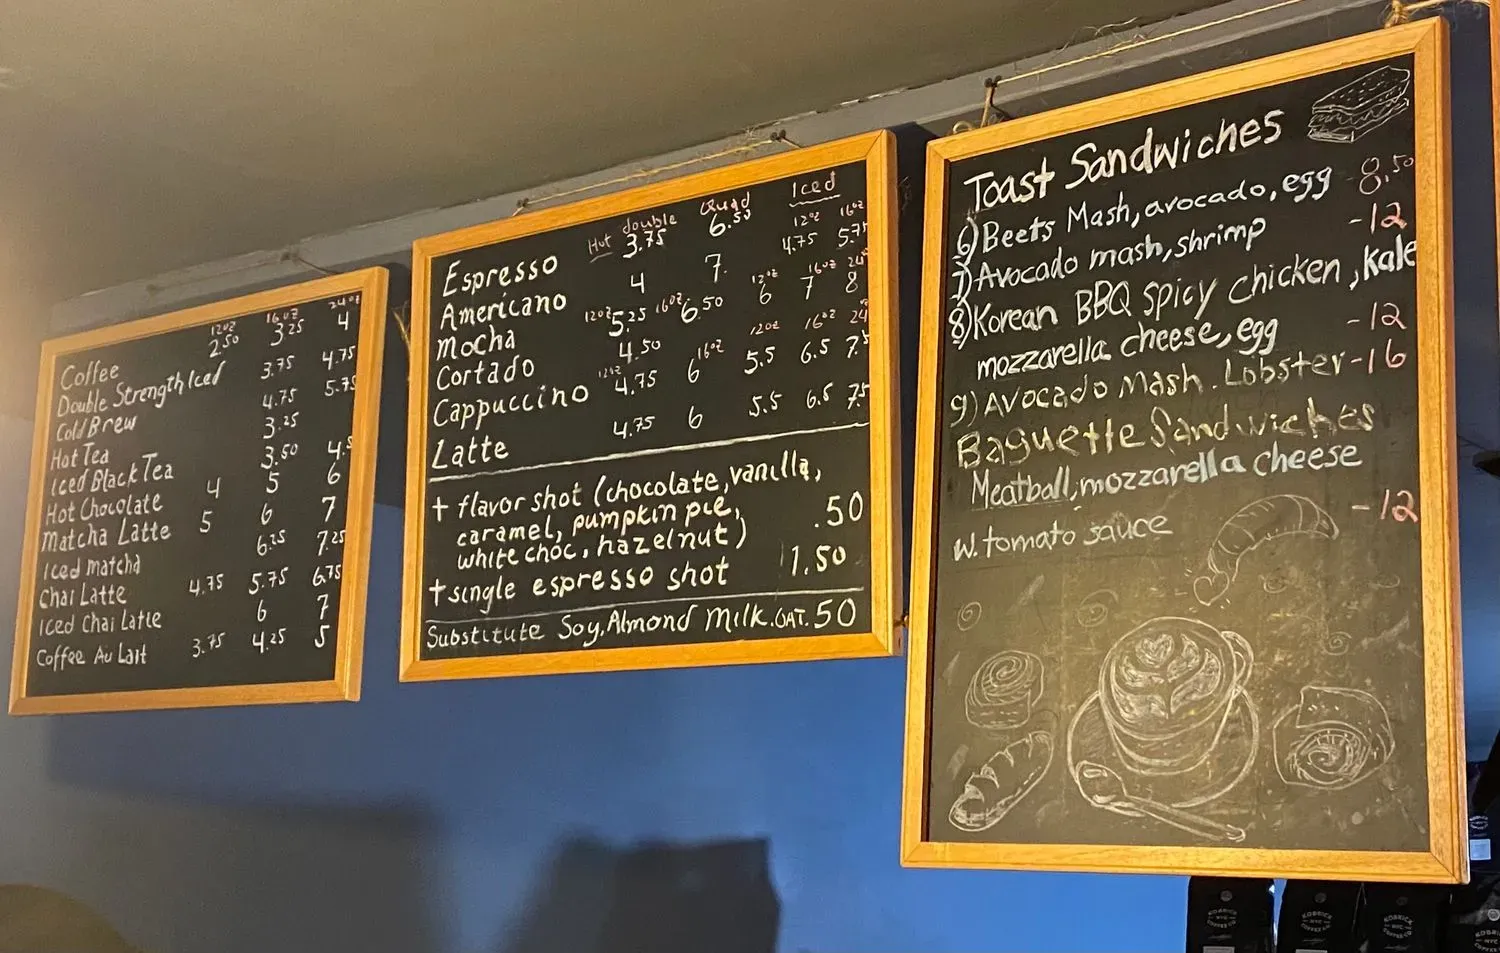 12oz 16oz 24oz
Coffee 2.50 3.25 4
Double Strength Iced 3.75 4.75
Cold Brew 4.75 5.75
Hot Tea 3.25
Iced Black Tea 3.50 4.5
Hot Chocolate 4 5 6
Matcha Latte 5 6 7
Iced matcha 6.25 7.25
Chai Latte 4.75 5.75 6.75
Iced Chai Latte 6 7
Coffee Au Lait 3.75 4.25 5
Hot double Quad Iced
Espresso 3.75 6.50 12oz 16oz
Americano 4 7. 4.75 5.75
12oz 16oz 12oz 16oz 24oz
Mocha 5.25 6.50 6 7 8
Cortado 4.50
12oz 16oz 12oz 16oz 24
Cappuccino 4.75 6 5.5 6.5 7.5
Latte 4.75 6 5.5 6.5 7.5
+ flavor shot (chocolate, vanilla,
caramel, pumpkin pie, .50
white choc, hazelnut)
+ single espresso shot 1.50
Substitute Soy, Almond Milk. OAT. 50
Toast Sandwiches
6) Beets Mash, avocado, egg 8.50
7) Avocado mash, shrimp -12
8) Korean BBQ spicy chicken, kale
mozzarella cheese, egg -12
9) Avocado Mash. Lobster -16
Baguette Sandwiches
Meatball, mozzarella cheese
w. tomato sauce -12
KOBRICK
NYC
COFFEE CO
KOBRICK
NYC
COFFEE CO
KOBRICK
NYC
COFFEE CO